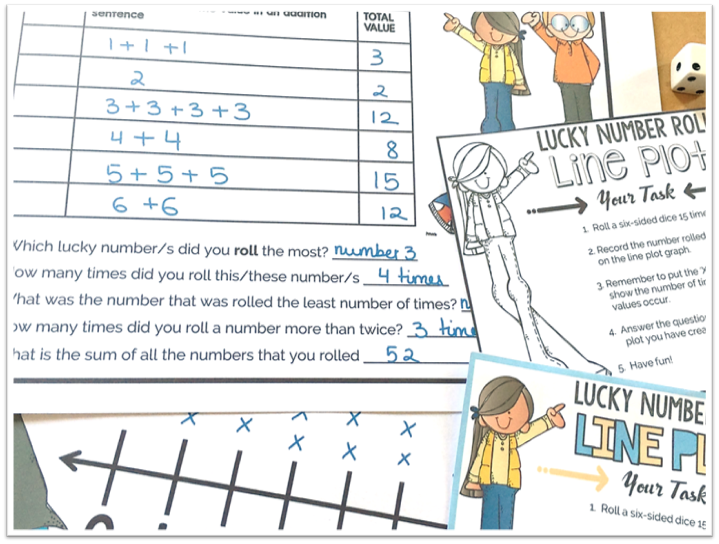 sentence
TOTAL
VALUE
1 + 1 + 1 3
2 2
3 + 3 + 3 + 3 12
4 + 4 8
5 + 5 + 5 15
6 + 6 12
Which lucky number/s did you roll the most? number 3
ow many times did you roll this/these number/s 4 times
hat was the number that was rolled the least number of times?
ow many times did you roll a number more than twice? 3 tim
hat is the sum of all the numbers that you rolled 52
LUCKY NUMBER ROL
Line Plot
Your Task
1. Roll a six-sided dice 15 time
2. Record the number rolled
on the line plot graph.
3. Remember to put the 'X
show the number of tim
values occur.
4. Answer the questio
plot you have crea
5. Have fun!
X X X X X
X X X
LUCKY NUMBE
LINE PL
Your Task
1. Roll a six-sided dice 15